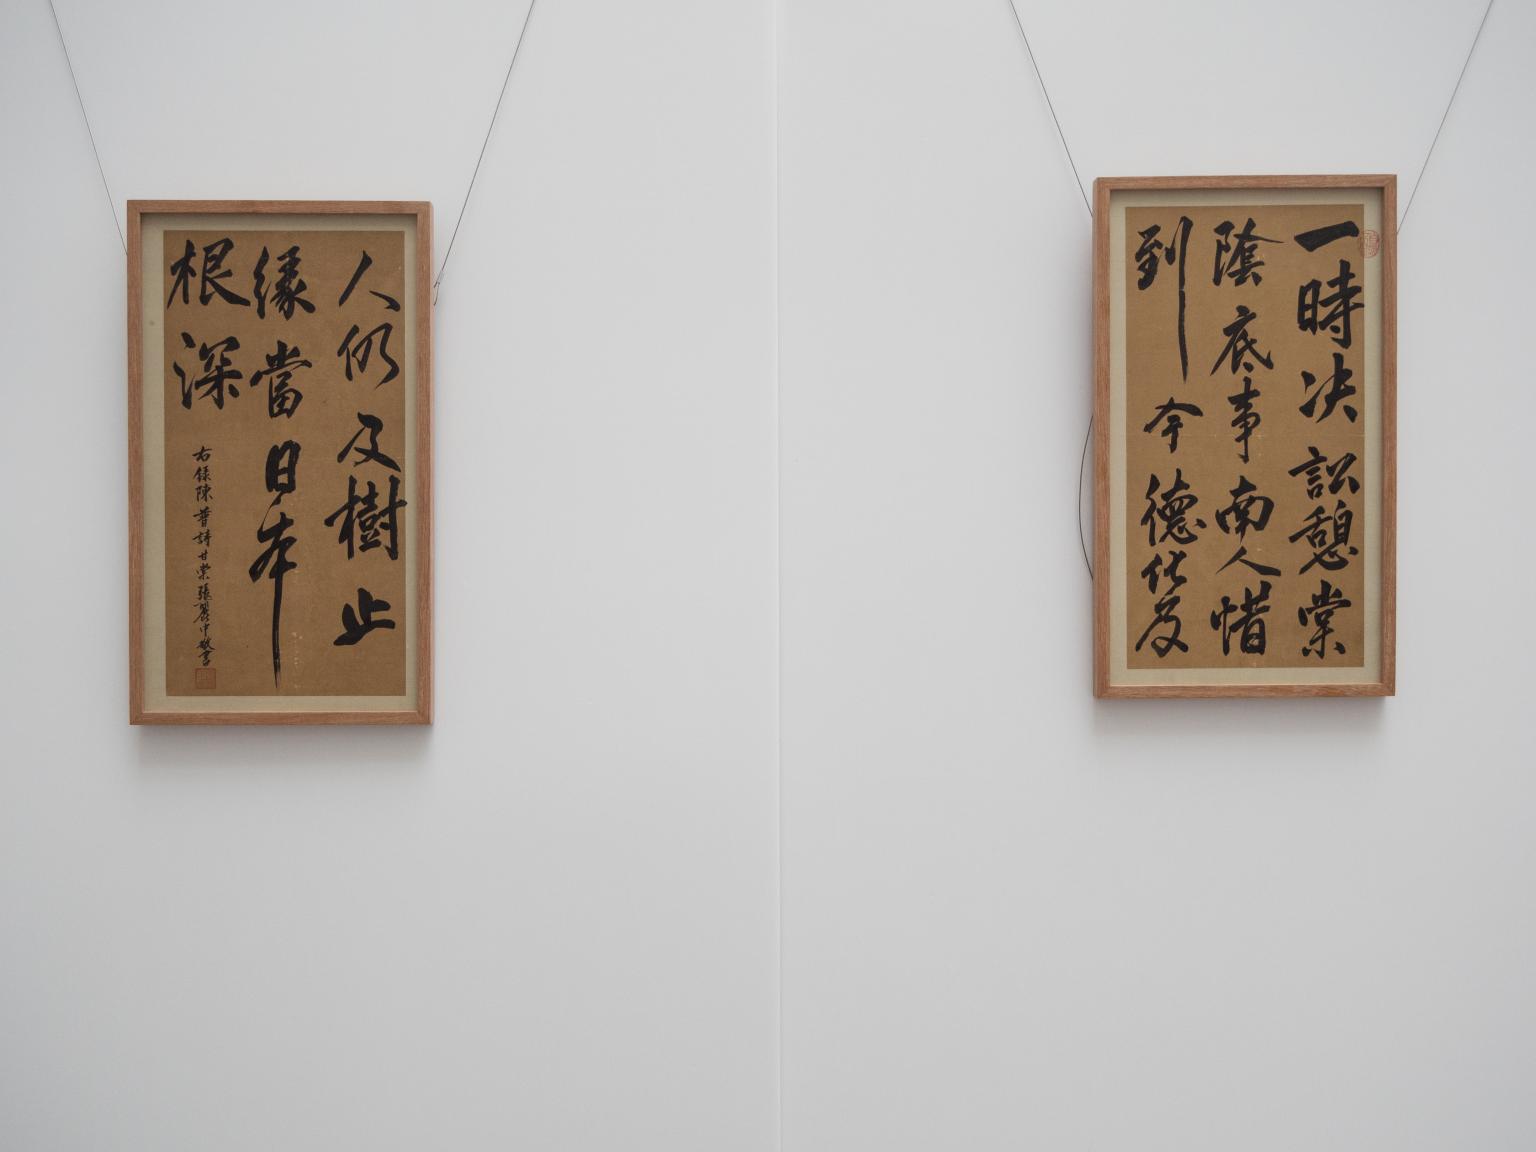 一時决訟憩棠
陰底事南人惜
到今德化及
人仍及樹止
緣當日本
根深
右錄陳普詩甘棠張
中敬書